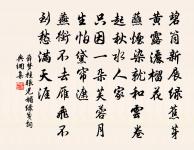 碧筒新展绿蕉芽
黄露洒榴花
蘸烟染就和云卷
起秋水人家
只因一朵芙蓉月
生怕黛帘遮
燕衔不去雁飞不
到愁满天涯
薛梦桂眼儿媚绿笺词